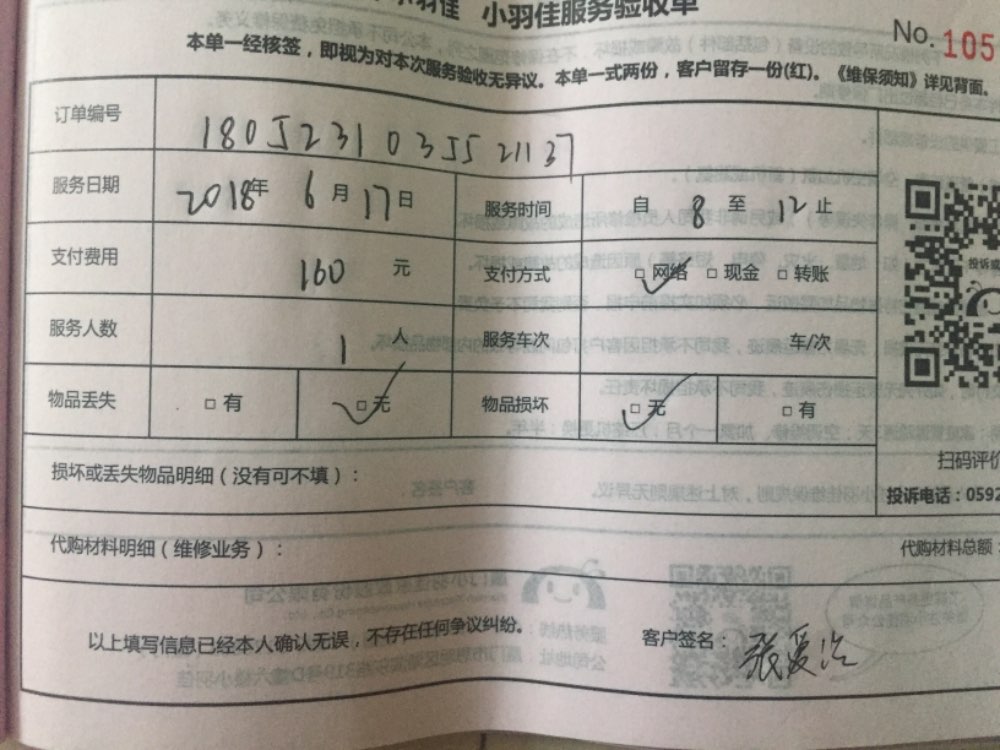 小羽佳 小羽佳服务验收单
No. 105
本单一经核签，即视为对本次服务验收无异议。本单一式两份，客户留存一份(红)。《维保须知》详见背面。
订单编号 1805231035521137
服务日期 2018年 6月17日 服务时间 自 8 至 12 止
支付费用 160 元 支付方式 □ 网络 □ 现金 □ 转账
服务人数 1 人 服务车次 车/次
物品丢失 □ 有 □ 无 物品损坏 □ 无 □ 有
投诉或
扫码评价
损坏或丢失物品明细（没有可不填）：
投诉电话：0592
代购材料明细（维修业务）：
代购材料总额：
以上填写信息已经本人确认无误，不存在任何争议纠纷。
客户签名：张爱